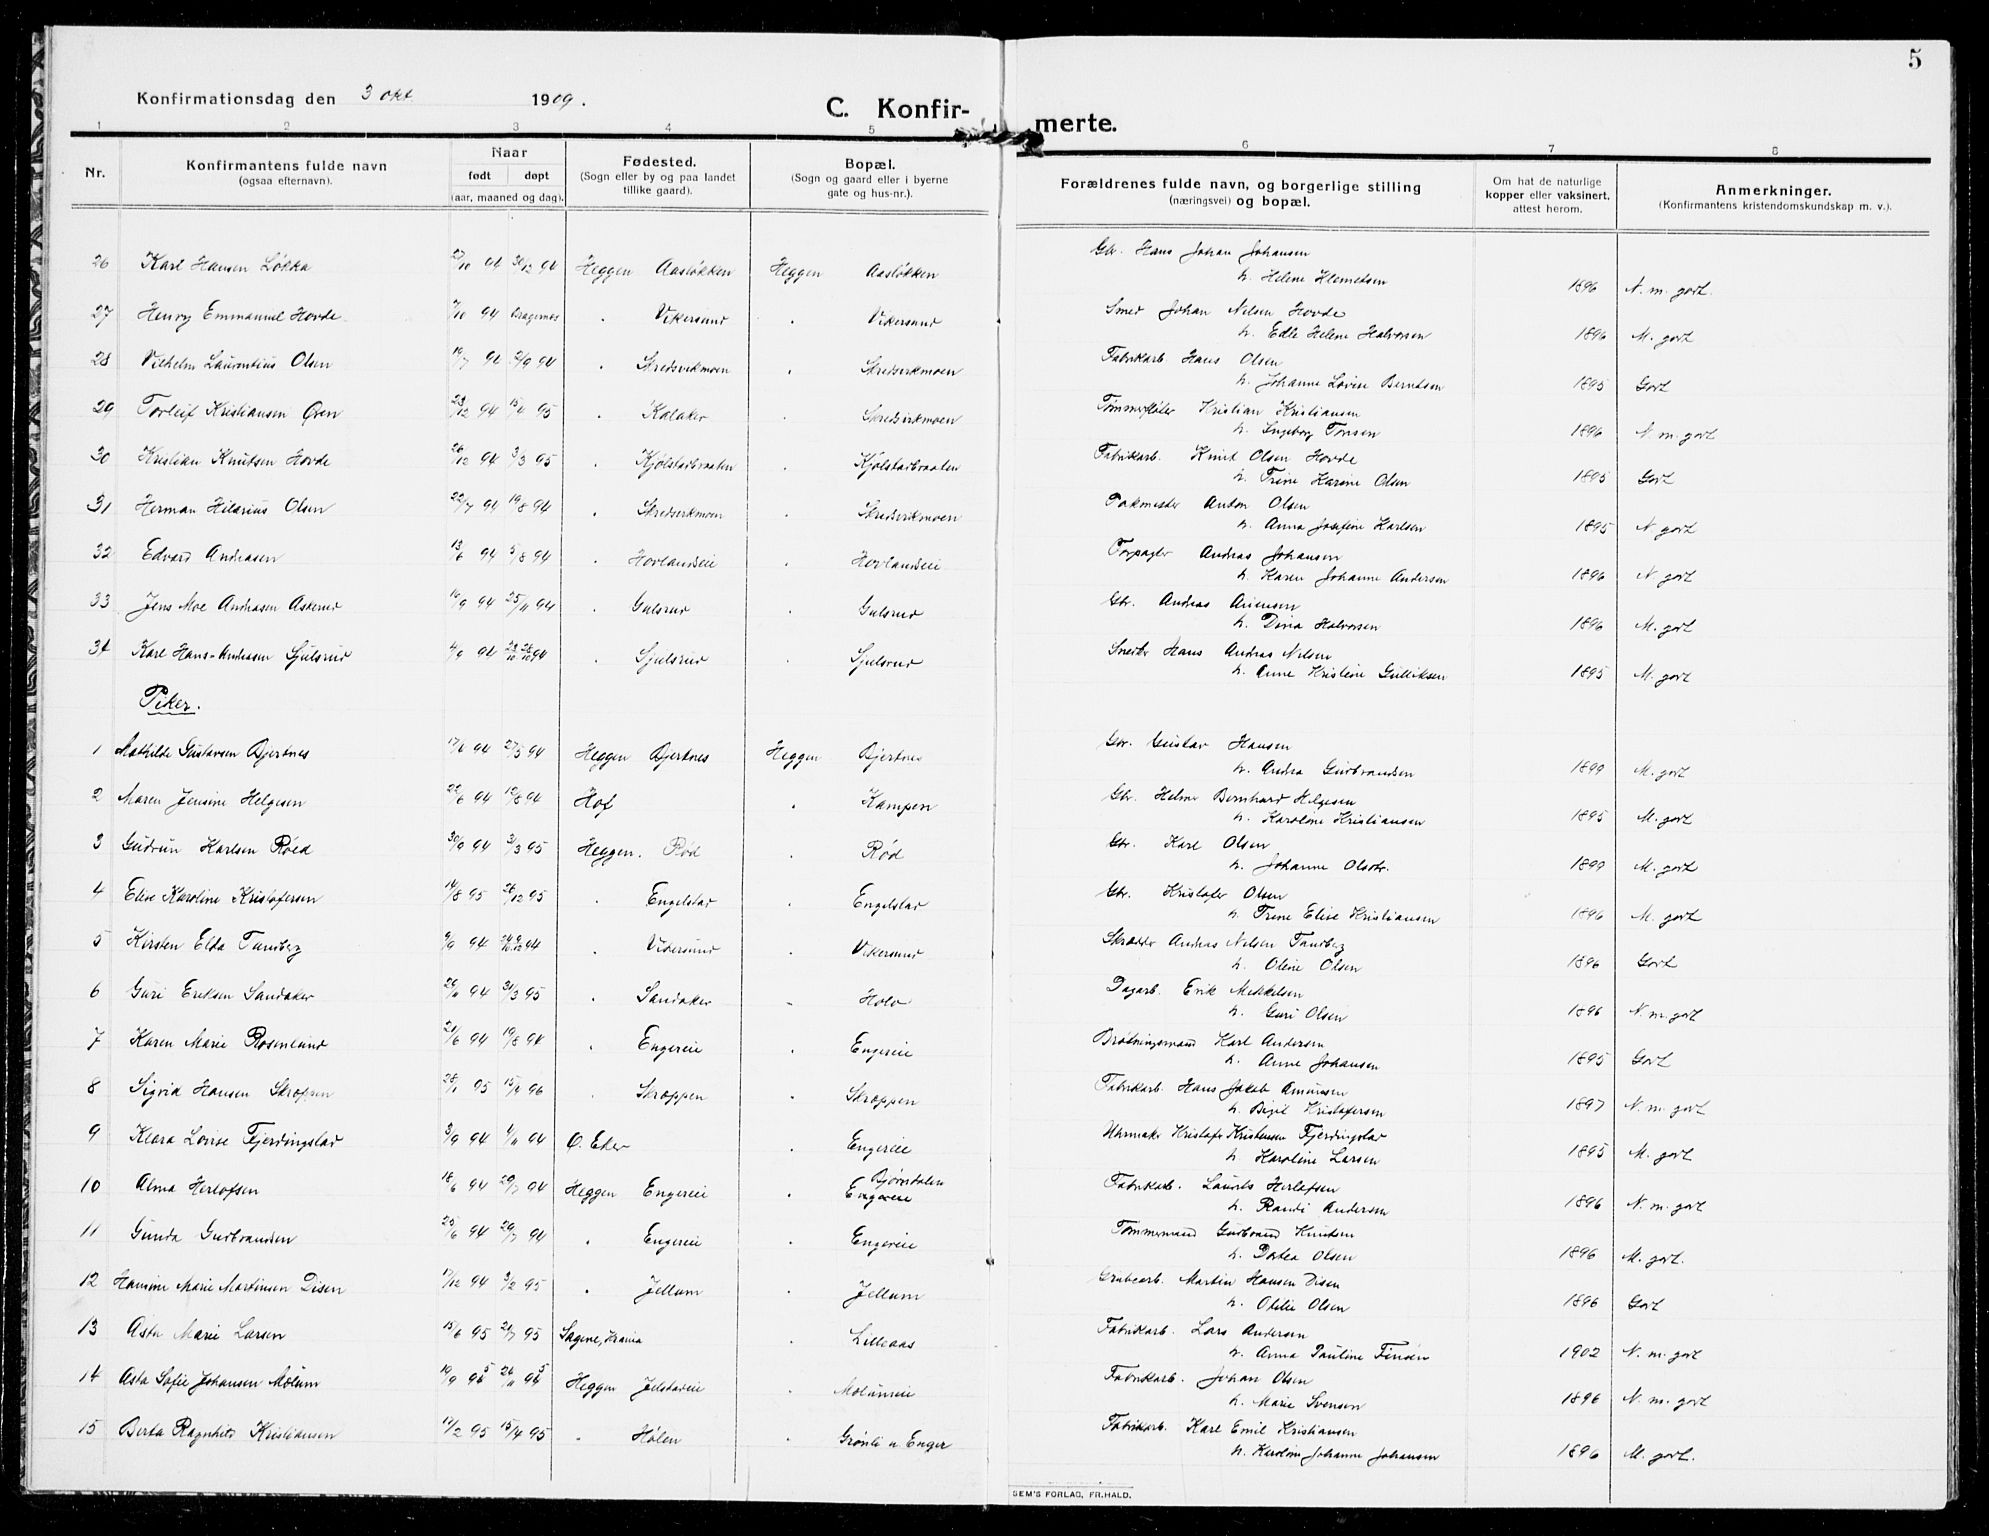 5
Konfirmationsdag den 3 okt 1909.
C. Konfir-
merte.
1 2 3 4 5 6 7 8
Nr.
Konfirmantens fulde navn
(ogsaa efternavn).
Naar
født døpt
(aar, maaned og dag).
Fødested.
(Sogn eller by og paa landet
tillike gaard).
Bopæl.
(Sogn og gaard eller i byerne
gate og hus-nr.).
Forældrenes fulde navn, og borgerlige stilling
(næringsvei) og bopæl.
Om hat de naturlige
kopper eller vaksinert,
attest herom.
Anmerkninger.
(Konfirmantens kristendomskundskap m. v.).
26 Karl Hansen Løkka 94 30/12 94 Heggen Aasløkken Heggen Aasløkken Gbr. Hans Johan Johansen
h. Helene Klemetsen 1896 N. m. godt.
27 Henry Emmanuel Hovde 94 Bragernes " Vikersund " Vikersund Smed Johan Nilsen Hovde
h. Edle Helene Halvorsen 1896 M. godt
28 Vilhelm Laurentius Olsen 94 2/9 94 " Skredsvikmoen " Skredsvikmoen Fabrikarb. Hans Olsen
h. Johanne Lovise Berntsen 1895 Godt
29 Torleif Kristiansen Øren 23/12 94 15/4 95 " Kalaker " Skredsvikmoen Tømmerfløter Kristian Kristiansen
h. Ingeborg Tonsen 1896 N. m. godt
30 Kristian Knutsen Hovde 26/12 94 3/3 95 " Kjølstadbraaten " Kjølstadbraaten Fabrikarb. Knut Olsen Hovde
h. Trine Karine Olsen 1895 Godt
31 Herman Hilarius Olsen 22/7 94 19/8 94 " Skredsvikmoen " Skredsvikmoen Pakmester Anton Olsen
h. Anna Josefine Karlsen 1895 N godt
32 Edvard Andreasen 13/6 94 5/8 94 " Hovlandseie " Hovlandseie Forpagter Andreas Johansen
h. Karen Johanne Andersen 1896 N. godt
33 Jens Moe Andreasen Askerud 16/9 94 25/11 94 " Gulsrud " Gulsrud Gbr. Andreas
h. Dina Halvorsen 1896 M. godt
34 Karl Hans-Andreasen Sjulsrud 4/9 94 " Sjulsrud " Sjulsrud Hans Andreas Nilsen
h. Anne Kristine Gulliksen 1895 M. godt
Piker.
1 Mathilde Gustavsen Bjertnes 17/4 94 27/5 94 Heggen Bjertnes Heggen Bjertnes Gbr. Gustav Hansen
h. Andrea Gudbrandsen 1899 M. godt
2 Maren Jensine Helgesen 22/6 94 12/8 94 Hof " Kampen Gbr. Helmer Bernhard Helgesen
h. Karoline Kristiansen 1895 M. godt
3 Gudrun Karlsen Røed 30/9 94 3/3 95 Heggen. Rød " Rød Gbr. Karl Olsen
h. Johanne Olsdtr. 1899 M. godt
4 Elise Karoline Kristofersen 14/8 95 26/12 95 " Engelstad " Engelstad Gbr. Kristofer Olsen
h. Trine Elise Kristiansen 1896 M. godt
5 Kirsten Elda Tandberg 9/9 94 " Vikersund " Vikersund Skrædder Andreas Nilsen Tandberg
h. Oline Olsen 1896 Godt
6 Guri Eriksen Sandaker 29/11 94 31/3 95 " Sandaker " Holo Dagarb. Erik Mikkelsen
h. Guri Olsen 1896 N. m. godt
7 Karen Marie Rosenlund 21/6 94 19/8 94 " Engereie " Engereie Brøtningsmand Karl Andersen
h. Anne Johansen 1895 Godt
8 Sigrid Hansen Skroppen 28/1 95 15/4 96 " Skroppen " Skroppen Fabrikarb. Hans Jakob Amundsen
h. Birgit Kristofersen 1897 N. m. godt
9 Klara Lovise Fjerdingstad 3/9 94 4/11 94 Ø. Eker " Engereie Uhrmaker Kristofer Kristensen Fjerdingstad
h. Karoline Larsen 1895 M. godt
10 Alma Herlofsen 18/6 94 29/7 94 Heggen Engereie " Bjørndalen
Engereie Fabrikarb. Laurits Herlofsen
h. Randi Andersen 1896 N. m. godt
11 Gunda Gudbrandsen 25/6 94 29/7 94 " Engereie " Engereie Tømmermand Gudbrand Knutsen
h. Dortea Olsen 1896 M. godt.
12 Hansine Marie Martinsen Disen 17/12 94 3/2 95 " Jellum " Jellum Grubearb. Martin Hansen Disen
h. Otilie Olsen 1896 Godt
13 Asta Marie Larsen 15/6 95 21/7 95 Sagene, Krania " Lilleaas Fabrikarb. Lars Andersen
h. Anna Pauline Finsen 1902 N. m. godt
14 Asta Sofie Johansen Mølum 19/9 95 24/11 95 Heggen Jelstadeie " Mølumeie Fabrikarb. Johan Olsen
h. Marie Svensen 1896 N. m. godt
15 Berta Ragnhild Kristiansen 17/2 95 15/4 95 " Hølen Grønli u. Enger Fabrikarb. Karl Emil Kristiansen
h. Karoline Johanne Johansen 1896 M. godt.
SEM'S FORLAG, FR.HALD.